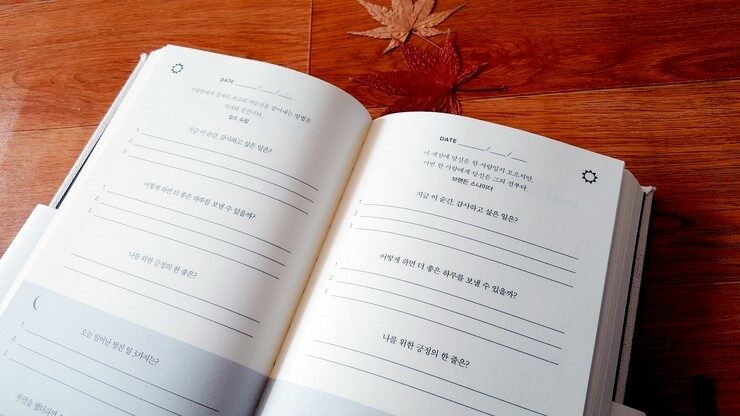 DATE ___/___/___
사람들에게 잠재된 최고의 가능성을 끌어내는 방법은
격려와 칭찬이다.
찰스 슈왑
지금 이 순간, 감사하고 싶은 일은?
1
2
3
어떻게 하면 더 좋은 하루를 보낼 수 있을까?
1
2
3
나를 위한 긍정의 한 줄은?
오늘 일어난 멋진 일 3가지는?
1
2
3
무엇을 했더라면
DATE ___/___/___
이 세상에 당신은 한 사람일지 모르지만,
어떤 한 사람에게 당신은 그의 전부다.
브랜든 스나이더
지금 이 순간, 감사하고 싶은 일은?
1
2
3
어떻게 하면 더 좋은 하루를 보낼 수 있을까?
1
2
3
나를 위한 긍정의 한 줄은?